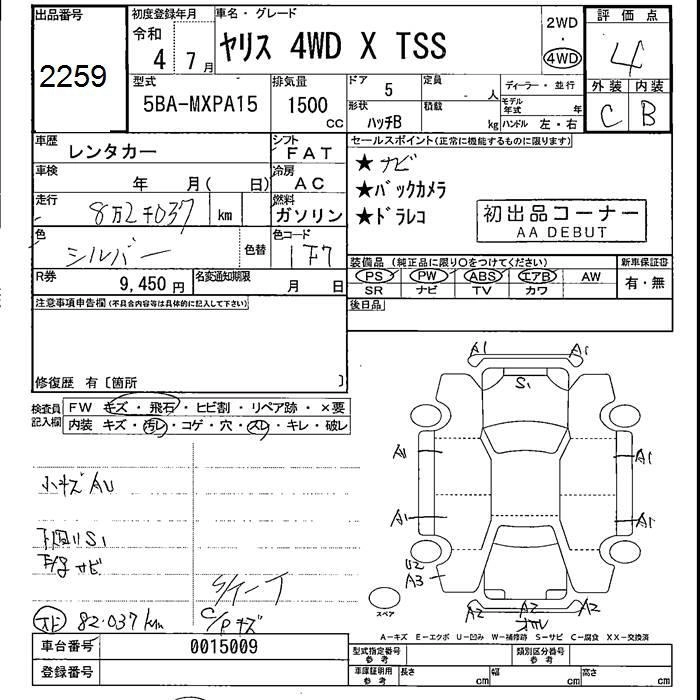 出品番号
2259
初度登録年月
令和
4年 7月
車名・グレード
ヤリス 4WD X TSS
2WD
4WD
評価点
4
外装 内装
C B
型式
5BA-MXPA15
排気量
1500 CC
ドア 5
形状 ハッチB
定員 人
積載 kg
ディーラー・並行
モデル年式 年
ハンドル 左・右
車歴 レンタカー
シフト FAT
車検 年 月( 日)
冷房 AC
走行 8万2千037 km
燃料 ガソリン
色 シルバー
色替
色コード 1F7
R券 9,450円
名変通知期限 月 日
セールスポイント(正常に機能するものに限ります)
★ナビ
★バックカメラ
★ドラレコ
初出品コーナー
AA DEBUT
装備品(純正品に限り○をつけてください)
新車保証書
PS PW ABS エアB AW
SR ナビ TV カワ
有・無
後日品
注意事項申告欄(不具合内容等は具体的に記入して下さい)
修復歴 有〔箇所 〕
検査員記入欄
FW キズ・飛石・ヒビ割・リペア跡・×要
内装 キズ・汚レ・コゲ・穴・スレ・キレ・破レ
小キズ AU
下回り S1
サビ
82.037km
C/Pキズ
A1 A1
S1
A1 A1
A1 A1
U2
A3
A2 A2 A2
スペア
A-キズ E-エクボ U-凹み W-補修跡 S-サビ C-腐食 XX-交換済
車台番号 0015009
登録番号
型式指定番号 参考
類別区分番号 参考
車庫証明用 参考
長さ cm 幅 cm 高さ cm